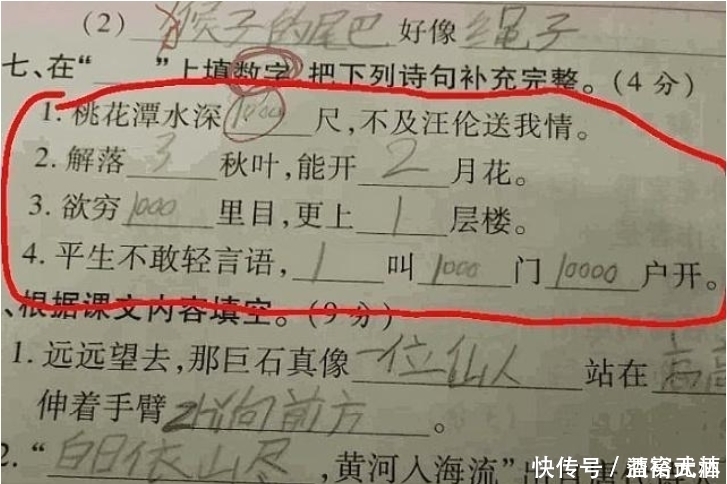 (2) 猴子的尾巴 好像 绳子
七、在“ ”上填数字,把下列诗句补充完整。(4分)
1. 桃花潭水深1000尺,不及汪伦送我情。
2. 解落3秋叶,能开2月花。
3. 欲穷1000里目,更上1层楼。
4. 平生不敢轻言语,1叫1000门10000户开。
、根据课文内容填空。(9分)
1. 远远望去,那巨石真像一位仙人 站在
伸着手臂 指向前方。
2. “白日依山尽,黄河入海流”出自唐
快传号/